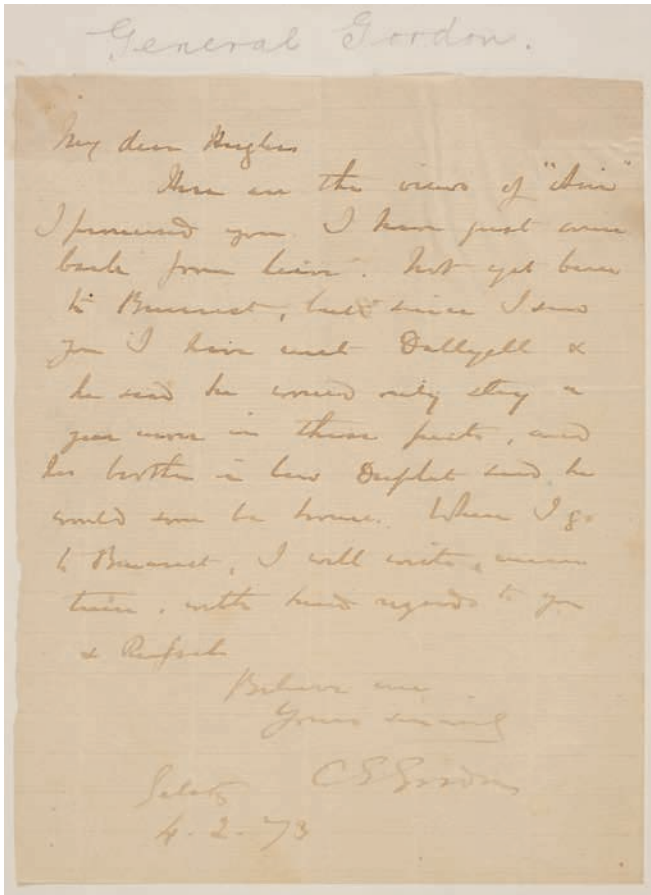 General Gordon.
My dear Hughes
Here are the views of "Ani"
I promised you. I have just come
back from leave. Not yet been
to Bucarest, but since I saw
you I have met Dallyell &
he said he would only stay a
year more in those parts, and
his brother in law said he
would soon be home. When I go
to Bucarest, I will write, mean
time, with kind regards to you
&
Believe me
Yours sincerely
C G Gordon
Galatz
4-2-73